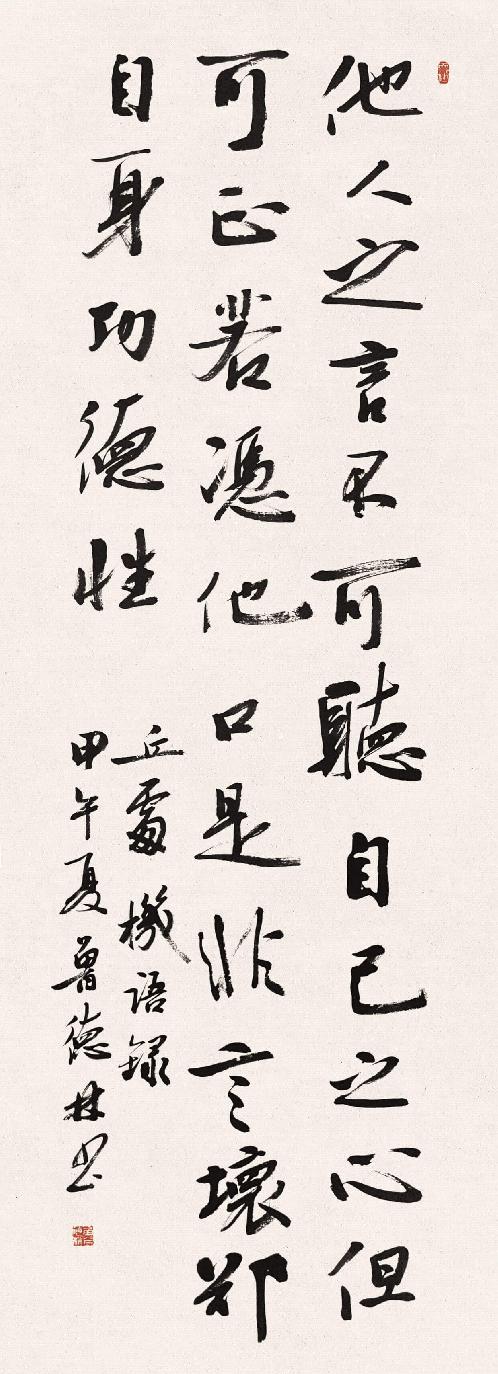 他人之言不可聽自己之心但
可正若憑他口是非言壞却
自身功德性
丘處機語録
甲午夏魯德林书